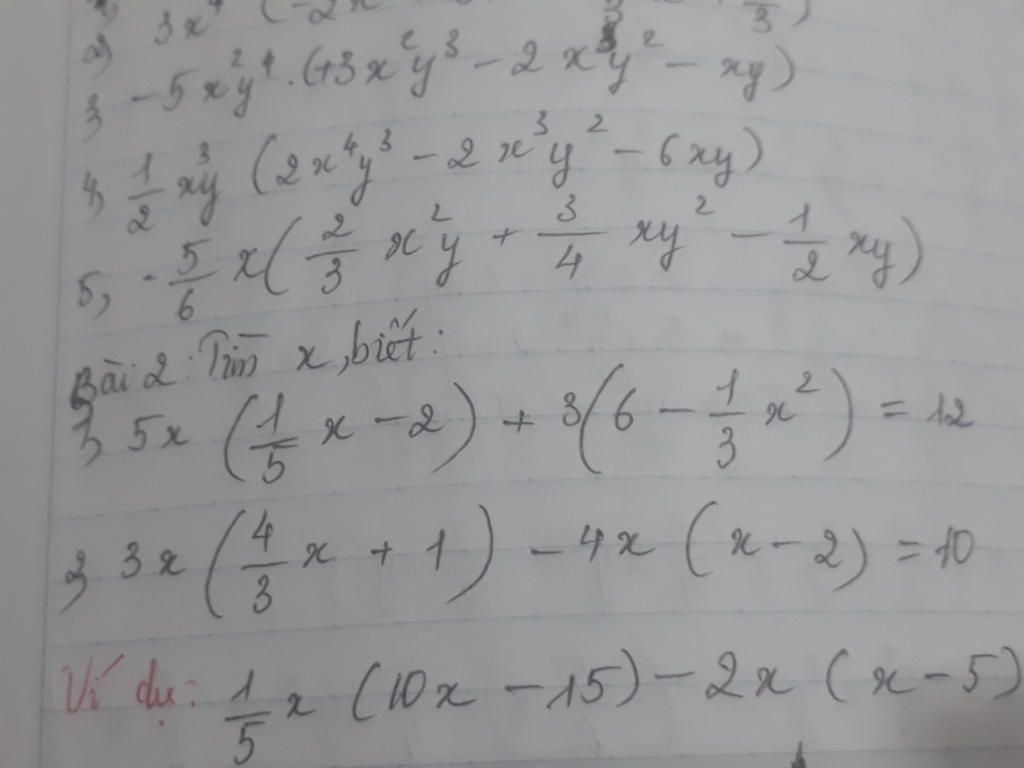 2, 3x (-2x 3)
3, -5x²y⁴.(+3x²y³ - 2x³y² - xy)
4, 1/2 xy³ (2x⁴y³ - 2x³y² - 6xy)
5, -5/6 x(2/3 x²y + 3/4 xy² - 1/2 xy)
Bài 2: Tìm x, biết:
1, 5x (1/5 x - 2) + 3(6 - 1/3 x²) = 12
2, 3x (4/3 x + 1) - 4x (x - 2) = 10
Ví dụ: 1/5 x (10x - 15) - 2x (x - 5)